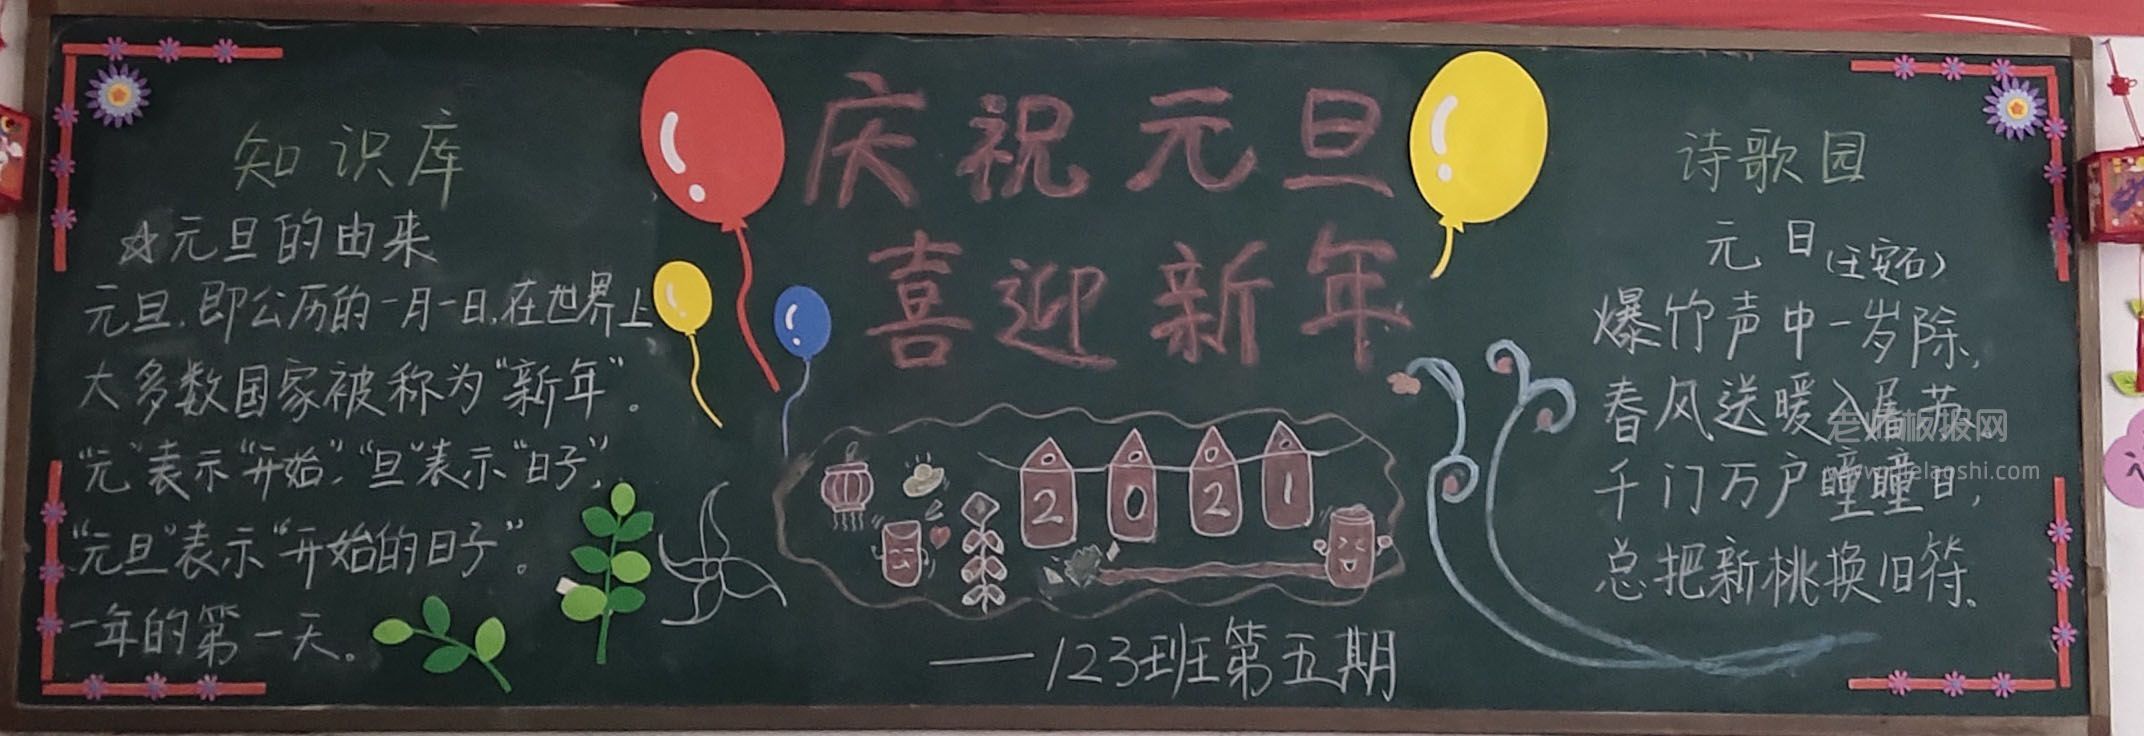 知识库
☆元旦的由来
元旦，即公历的一月一日，在世界上
大多数国家被称为“新年”。
“元”表示“开始”，“旦”表示“日子”，
“元旦”表示“开始的日子”。
一年的第一天。
庆祝元旦
喜迎新年
2021
——123班第五期
诗歌园
元日（王安石）
爆竹声中一岁除，
春风送暖入屠苏。
千门万户瞳瞳日，
总把新桃换旧符。
老师板报网